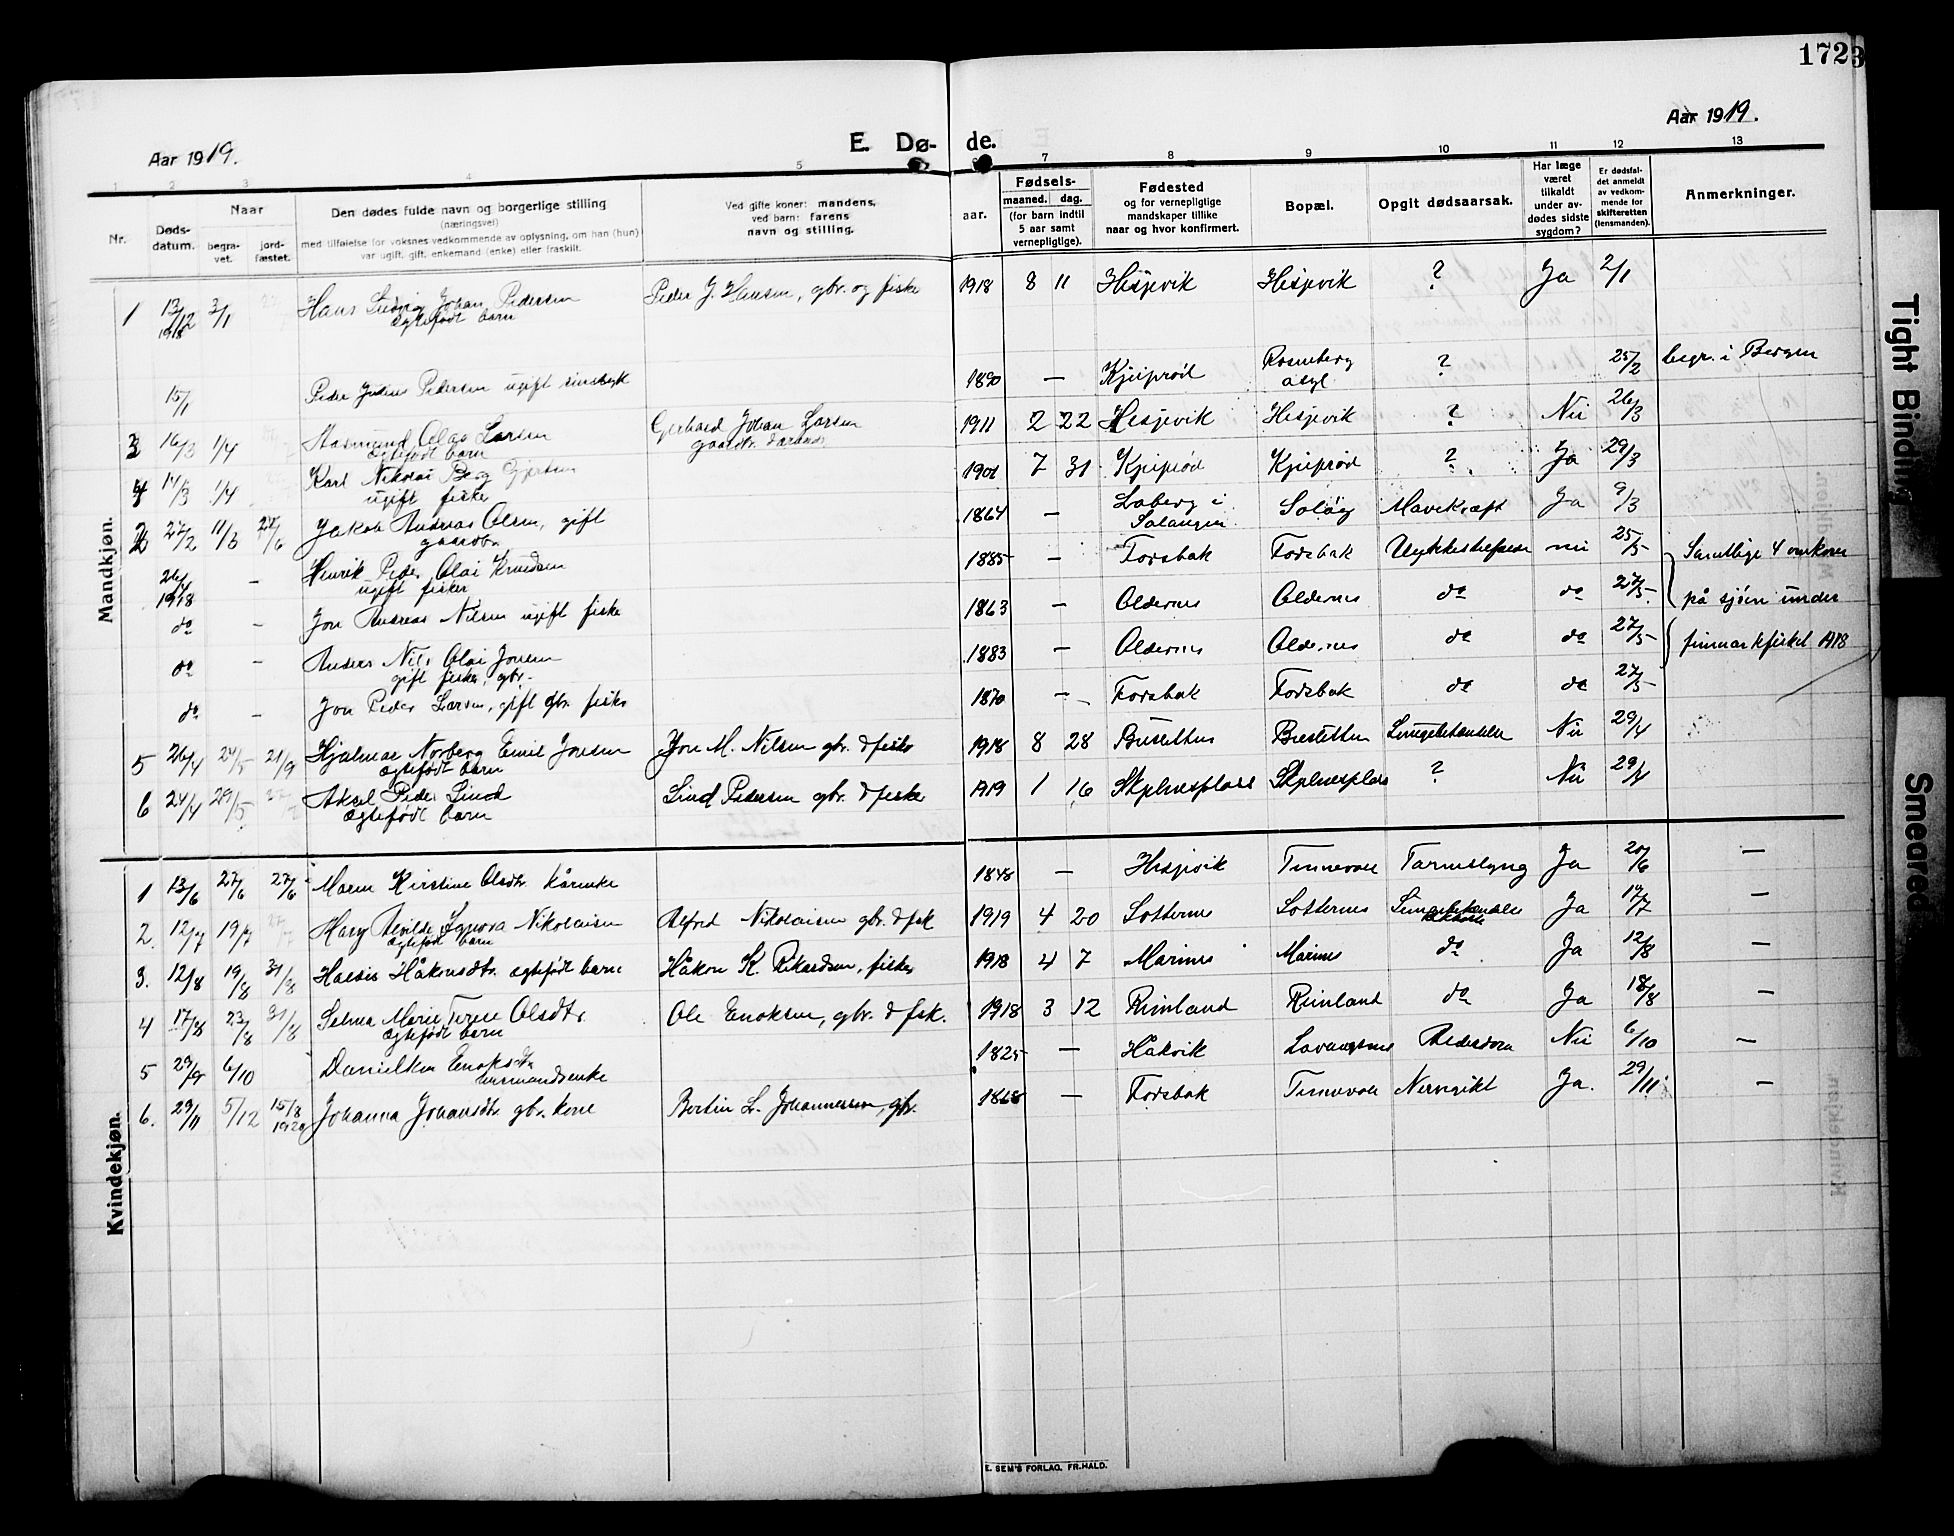 1723
Aar 1919.
E. Dø- de.
Aar 1919.
1 2 3 4 5 7 8 9 10 11 12 13
Nr.
Døds-
datum.
Naar
begra-
vet.
jord-
fæstet.
Den dødes fulde navn og borgerlige stilling
(næringsvei)
med tilføielse for voksnes vedkommende av oplysning, om han (hun)
var ugift, gift, enkemand (enke) eller fraskilt.
Ved gifte koner: mandens,
ved barn: farens
navn og stilling.
aar.
Fødsels-
maaned. dag.
(for barn indtil
5 aar samt
vernepligtige).
Fødested
og for vernepligtige
mandskaper tillike
naar og hvor konfirmert.
Bopæl.
Opgit dødsaarsak.
Har læge
været
tilkaldt
under av-
dødes sidste
sygdom?
Er dødsfal-
det anmeldt
av vedkom-
mende for
skifteretten
(lensmanden).
Anmerkninger.
Mandkjøn.
1 13/12 1918 3/1 Hans Ludvig Johan Pedersen Peder J. Hansen, gbr. og fisker 1918 8 11 Hesjevik Hesjevik ? Ja 2/1
ægtefødt barn
15/1 Peder Julius Pedersen ugift sindssyk 1890 — Kjeiprød Rosenberg ? 25/2 begr. i Bergen
asyl
3 16/3 1/4 Aasmund Olav Larsen Gerhard Johan Larsen 1911 2 22 Hesjevik Hesjevik ? Nei 26/3
ægtefødt barn gaardbr.
4 14/3 1/4 Karl Nikolai Berg Gjertsen 1901 7 31 Kjeiprød Kjeiprød ? Ja 29/3
ugift fisker
2 27/2 11/3 27/6 Jakob Andreas Olsen, gift 1864 — Laberg i Soløy Mavekræft Ja 9/3
gaardbr. Salangen
26/4 1918 — Henrik Peder Olai Knudsen 1885 — Forsbak Forsbak Ulykkestilfælde nei 25/5 Samtlige 4 omkom
ugift fisker
do — Jon Andreas Nilsen ugift fisker 1863 — Oldernes Oldernes do do 27/5 på sjøen under
do — Anders Nils Olai Jonsen 1883 — Oldernes Oldernes do do 27/5 finmarkfisket 1918
gift fisker, gbr.
do — Jon Peder Larsen, gift gbr. fisker 1870 — Forsbak Forsbak do do 27/5
5 26/4 24/5 21/9 Hjalmar Norberg Emil Jonsen Jon M. Nilsen gbr. & fisker 1918 8 28 Lungebetændelse Nei 29/4
ægtefødt barn
6 24/4 29/5 Aksel Peder Lind Lind Pedersen gbr. & fisker 1919 1 16 ? Nei 29/4
ægtefødt barn
Kvindekjøn.
1 13/6 27/6 27/6 Maren Kirstine Olsdtr. kårenke 1848 — Hesjevik Tennevoll Tarmslyng Ja 20/6 —
2 12/7 19/7 Mary Alvilde Nikolaisen Alfred Nikolaisen gbr. & fsk 1919 4 20 Lotternes Lotternes Lungebetændelse Ja 17/7 —
ægtefødt barn
3. 12/8 19/8 31/8 Håkonsdtr. ægtefødt barn Håkon K. Rikardsen, fisker 1918 4 7 Marines Marines do Ja 12/8 —
4 17/8 23/8 31/8 Selma Marie Olsdtr. Ole Enoksen, gbr. & fsk. 1918 3 12 Rimland Rimland do Ja 18/8 —
ægtefødt barn
5 29/9 6/10 Danielken Enoksdtr. 1825 — Håkvik Lavangsnes Alderdom Nei 6/10 —
6. 29/11 5/12 15/8 1920 Johanna Johansdtr. gbr. kone Bertin L. Johannessen, gbr. 1868 — Forsbak Tennevoll Nervegikt Ja. 29/11 —
E. SEM'S FORLAG, FR.HALD.
Tight Binding
Smeared